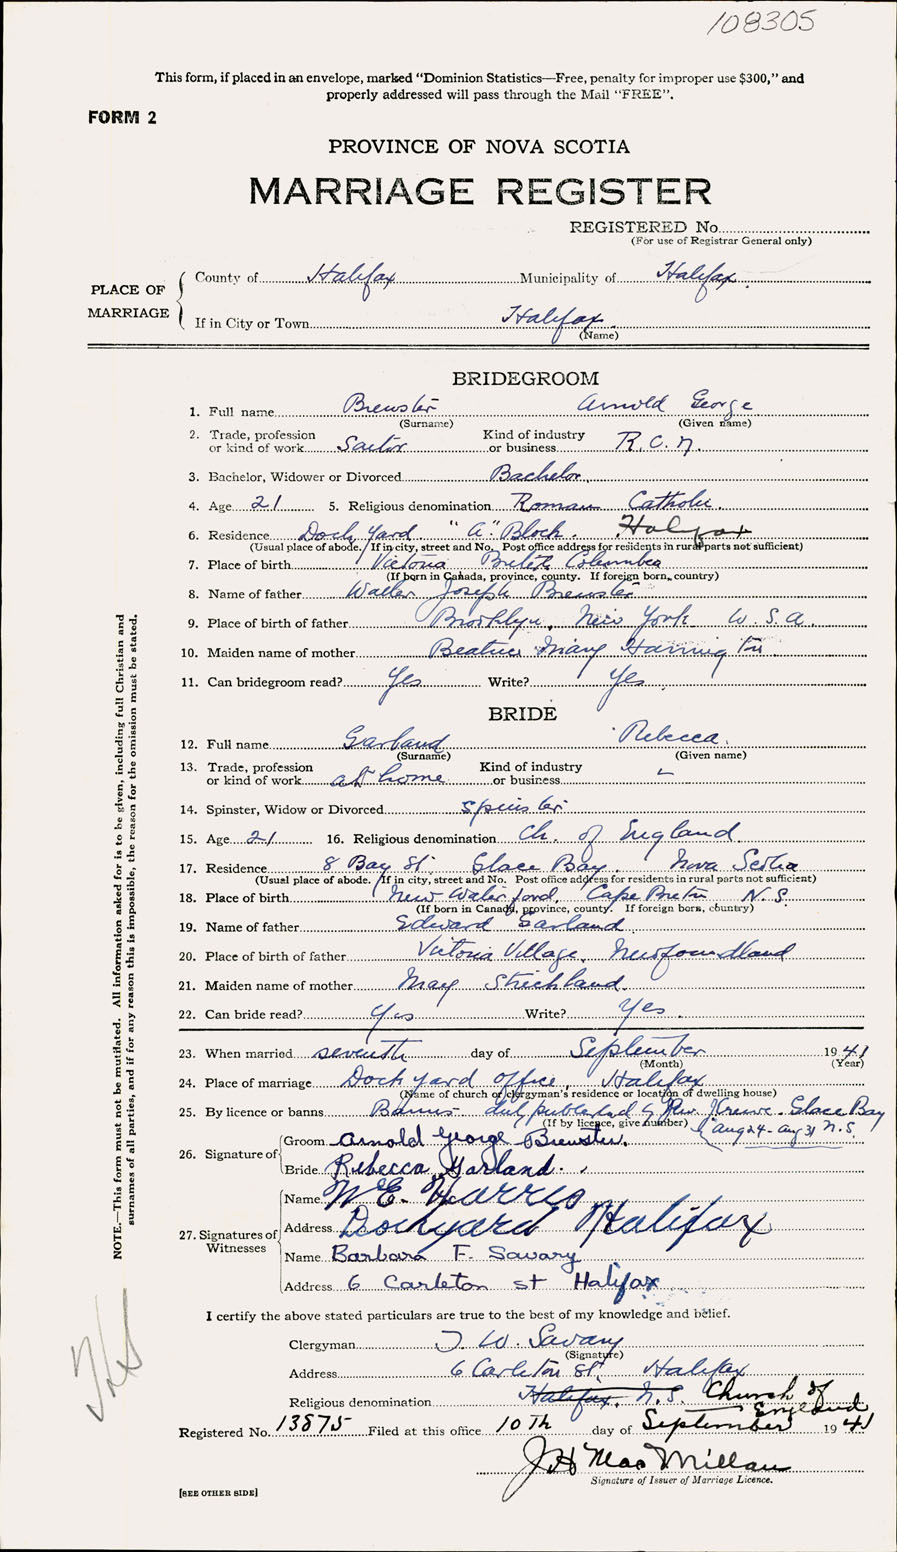 108305
This form, if placed in an envelope, marked "Dominion Statistics—Free, penalty for improper use $300," and
properly addressed will pass through the Mail "FREE".
FORM 2
PROVINCE OF NOVA SCOTIA
MARRIAGE REGISTER
REGISTERED No.
(For use of Registrar General only)
PLACE OF MARRIAGE
County of Halifax Municipality of Halifax
If in City or Town Halifax
(Name)
BRIDEGROOM
1. Full name Brewster Arnold George
(Surname) (Given name)
2. Trade, profession or kind of work Sailor Kind of industry or business R.C.N.
3. Bachelor, Widower or Divorced Bachelor
4. Age 21 5. Religious denomination Roman Catholic
6. Residence Dock Yard "A" Block. Halifax
(Usual place of abode. If in city, street and No. Post office address for residents in rural parts not sufficient)
7. Place of birth Victoria British Columbia
(If born in Canada, province, county. If foreign born, country)
8. Name of father Walter Joseph Brewster
9. Place of birth of father Brooklyn, New York U.S.A.
10. Maiden name of mother Beatrice Mary Harrington
11. Can bridegroom read? Yes Write? Yes
BRIDE
12. Full name Garland Rebecca
(Surname) (Given name)
13. Trade, profession or kind of work at home Kind of industry or business
14. Spinster, Widow or Divorced Spinster
15. Age 21 16. Religious denomination Ch. of England
17. Residence 8 Bay St. Glace Bay Nova Scotia
(Usual place of abode. If in city, street and No. Post office address for residents in rural parts not sufficient)
18. Place of birth New Waterford, Cape Breton N.S.
(If born in Canada, province, county. If foreign born, country)
19. Name of father Edward Garland
20. Place of birth of father Victoria Village, Newfoundland
21. Maiden name of mother May Strickland
22. Can bride read? Yes Write? Yes
23. When married seventh day of September 1941
(Month) (Year)
24. Place of marriage Dock yard office, Halifax
(Name of church or clergyman's residence or location of dwelling house)
25. By licence or banns Banns duly published by Rev. Glace Bay
(If by licence, give number) Aug 24 - Aug 31 N.S.
26. Signature of
Groom Arnold George Brewster.
Bride Rebecca Garland.
27. Signatures of Witnesses
Name W.E. Harris
Address Dockyard Halifax
Name Barbara F. Savary
Address 6 Carleton St Halifax
I certify the above stated particulars are true to the best of my knowledge and belief.
Clergyman T. W. Savary
(Signature)
Address 6 Carleton St. Halifax
Religious denomination Halifax, N.S. Church of England
Registered No. 13875 Filed at this office 10th day of September 1941
J H MacMillan
Signature of Issuer of Marriage Licence.
[SEE OTHER SIDE]
NOTE.—This form must not be mutilated. All information asked for is to be given, including full Christian and
surnames of all parties, and if for any reason this is impossible, the reason for the omission must be stated.